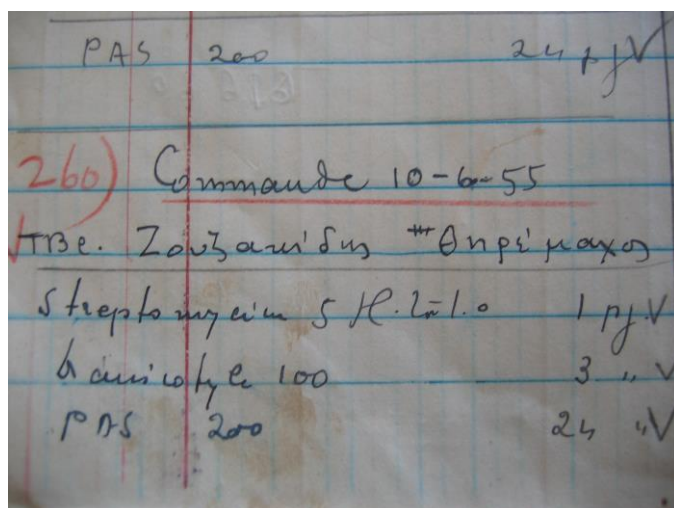 PAS 200 24 pj V
260) Commande 10-6-55
TBC. Ζουζανίδης Θηρίμαχος
Streptomycin 5 1.0 1 pj. V
100 3 " V
PAS 200 24 " V